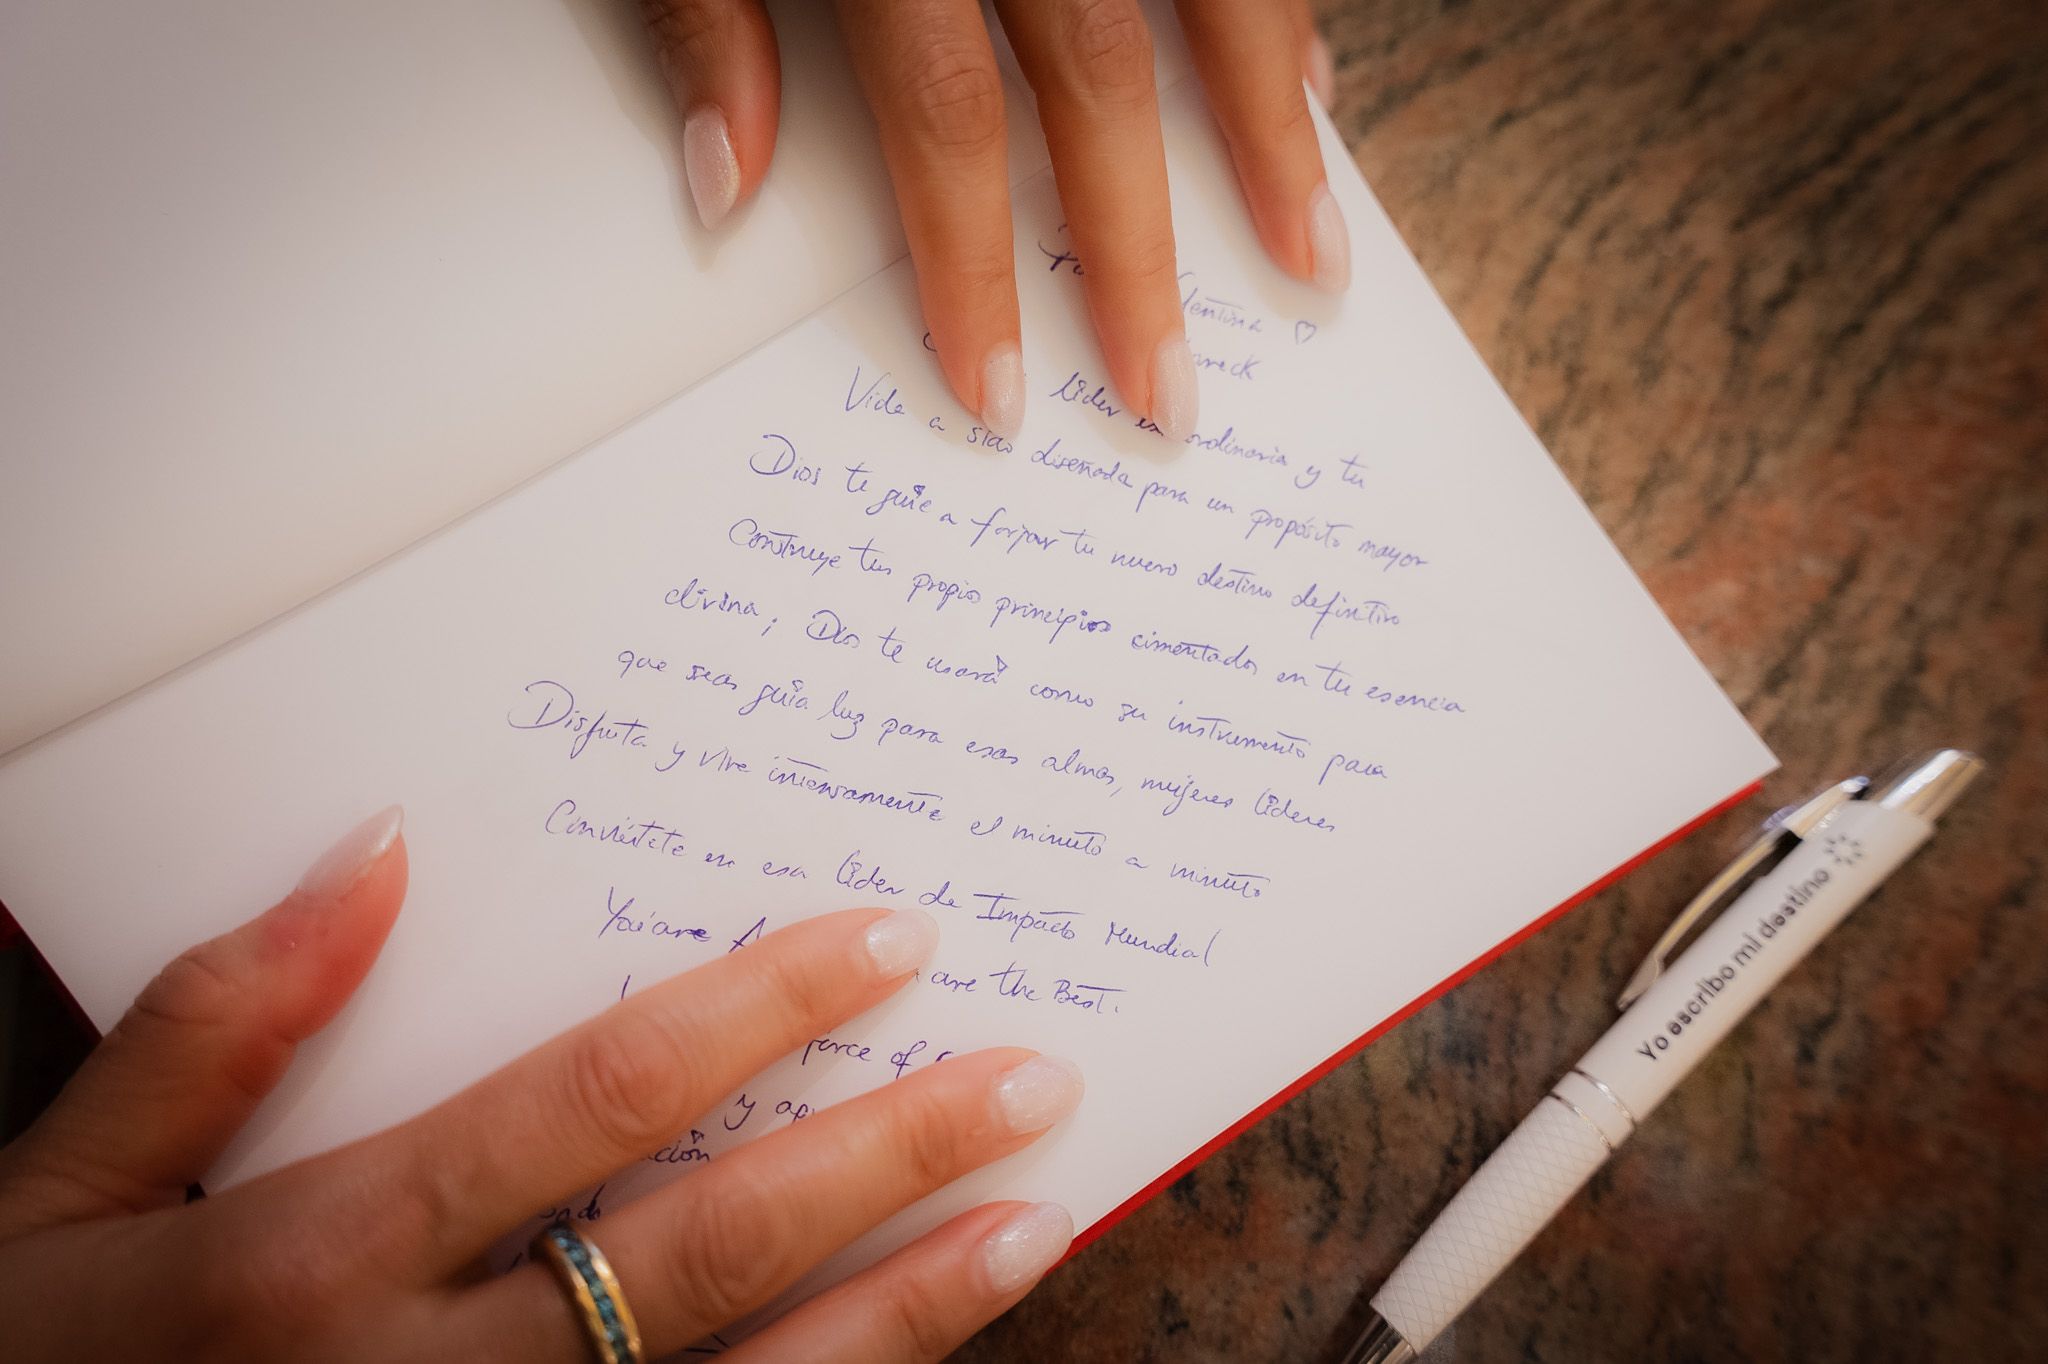 lentina ♡
areck
líder ordinaria y tu
Vida a sido diseñada para un propósito mayor
Dios te guíe a forjar tu nuevo destino definitivo
Construye tus propios principios cimentados en tu esencia
divina; Dios te usará como su instrumento para
que seas guía luz para esas almas, mujeres líderes
Disfruta y vive intensamente el minuto a minuto
Conviértete en esa líder de Impacto Mundial
You are A are the Best.
force of
y ap
ción
Yo escribo mi destino